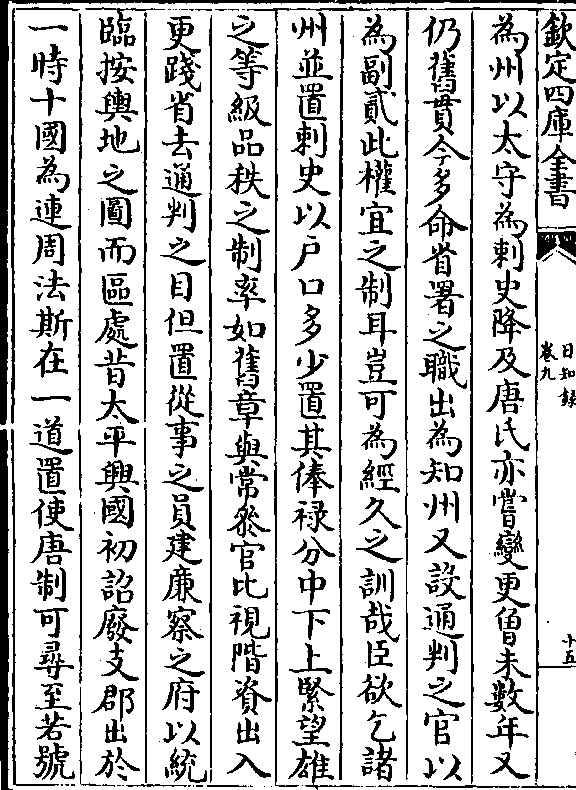 欽定四庫全書
日知録
卷九
十五
為州以太守為刺史降及唐氏亦嘗變更曾未數年又
仍舊貫今多命省署之職出為知州又設通判之官以
為副貳此權宜之制耳豈可為經久之訓哉臣欲乞諸
州並置刺史以戶口多少置其俸禄分中下上緊望雄
之等級品秩之制率如舊章與常叅官比視階資出入
更踐省去通判之目但置從事之員建廉察之府以統
臨按輿地之圖而區處昔太平興國初詔廢支郡出於
一時十國為連周法斯在一道置使唐制可尋至若號